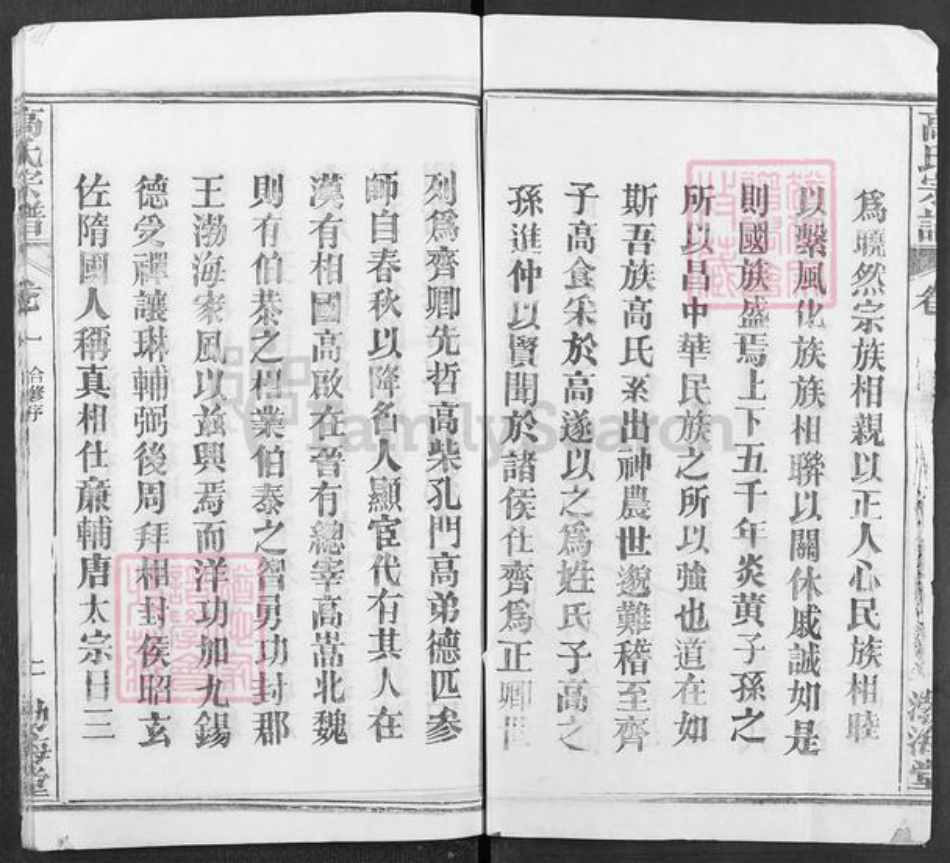 高氏宗譜
卷
渤海堂
爲曉然宗族相親以正人心民族相睦
以繫風化族族相聯以關休戚誠如是
則國族盛焉上下五千年炎黄子孫之
所以昌中華民族之所以強也道在如
斯吾族高氏系出神農世邈難稽至齊
子高食采於高遂以之爲姓氏子高之
孫進仲以賢聞於諸侯仕齊爲正卿世
列爲齊卿先哲高柴孔門高弟德匹參
師自春秋以降名人顯宦代有其人在
漢有相國高敞在晉有總宰高嵩北魏
則有伯恭之相業伯泰之智勇功封郡
王渤海家風以益興焉而洋功加九錫
德受禪讓琳輔弼後周拜相封侯昭玄
佐隋國人稱真相仕廉輔唐太宗目三
高氏宗譜
卷一
合修序
二
渤海堂
FamilySearch